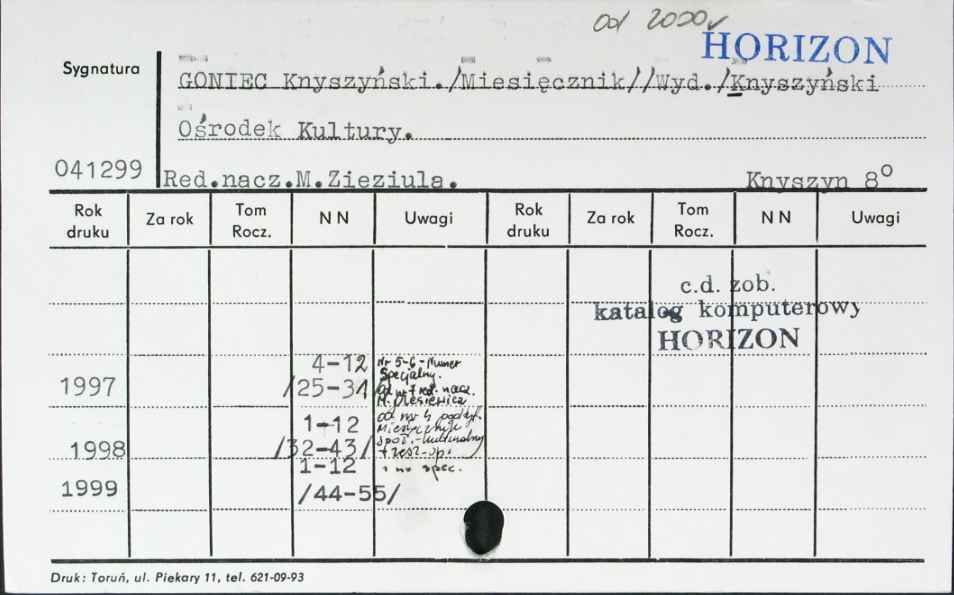 od 2000
HORIZON
Sygnatura
GONIEC Knyszyński./Miesięcznik//Wyd./Knyszyński
Ośrodek Kultury.
041299
Red.nacz.M.Zieziula. Knyszyn 8°
Rok druku Za rok Tom Rocz. NN Uwagi Rok druku Za rok Tom Rocz. NN Uwagi
c.d. zob.
katalog komputerowy
HORIZON
4-12 Nr 5-6-Numer
Specjalny.
1997 /25-31/ od nr 7 red. nacz.
H. Olesiewicz
1-12 od nr 4 podtyt.
Miesięcznik
1998 /32-43/ społ.-kulturalny
1-12 nr spec.
1999 /44-55/
Druk: Toruń, ul. Piekary 11, tel. 621-09-93